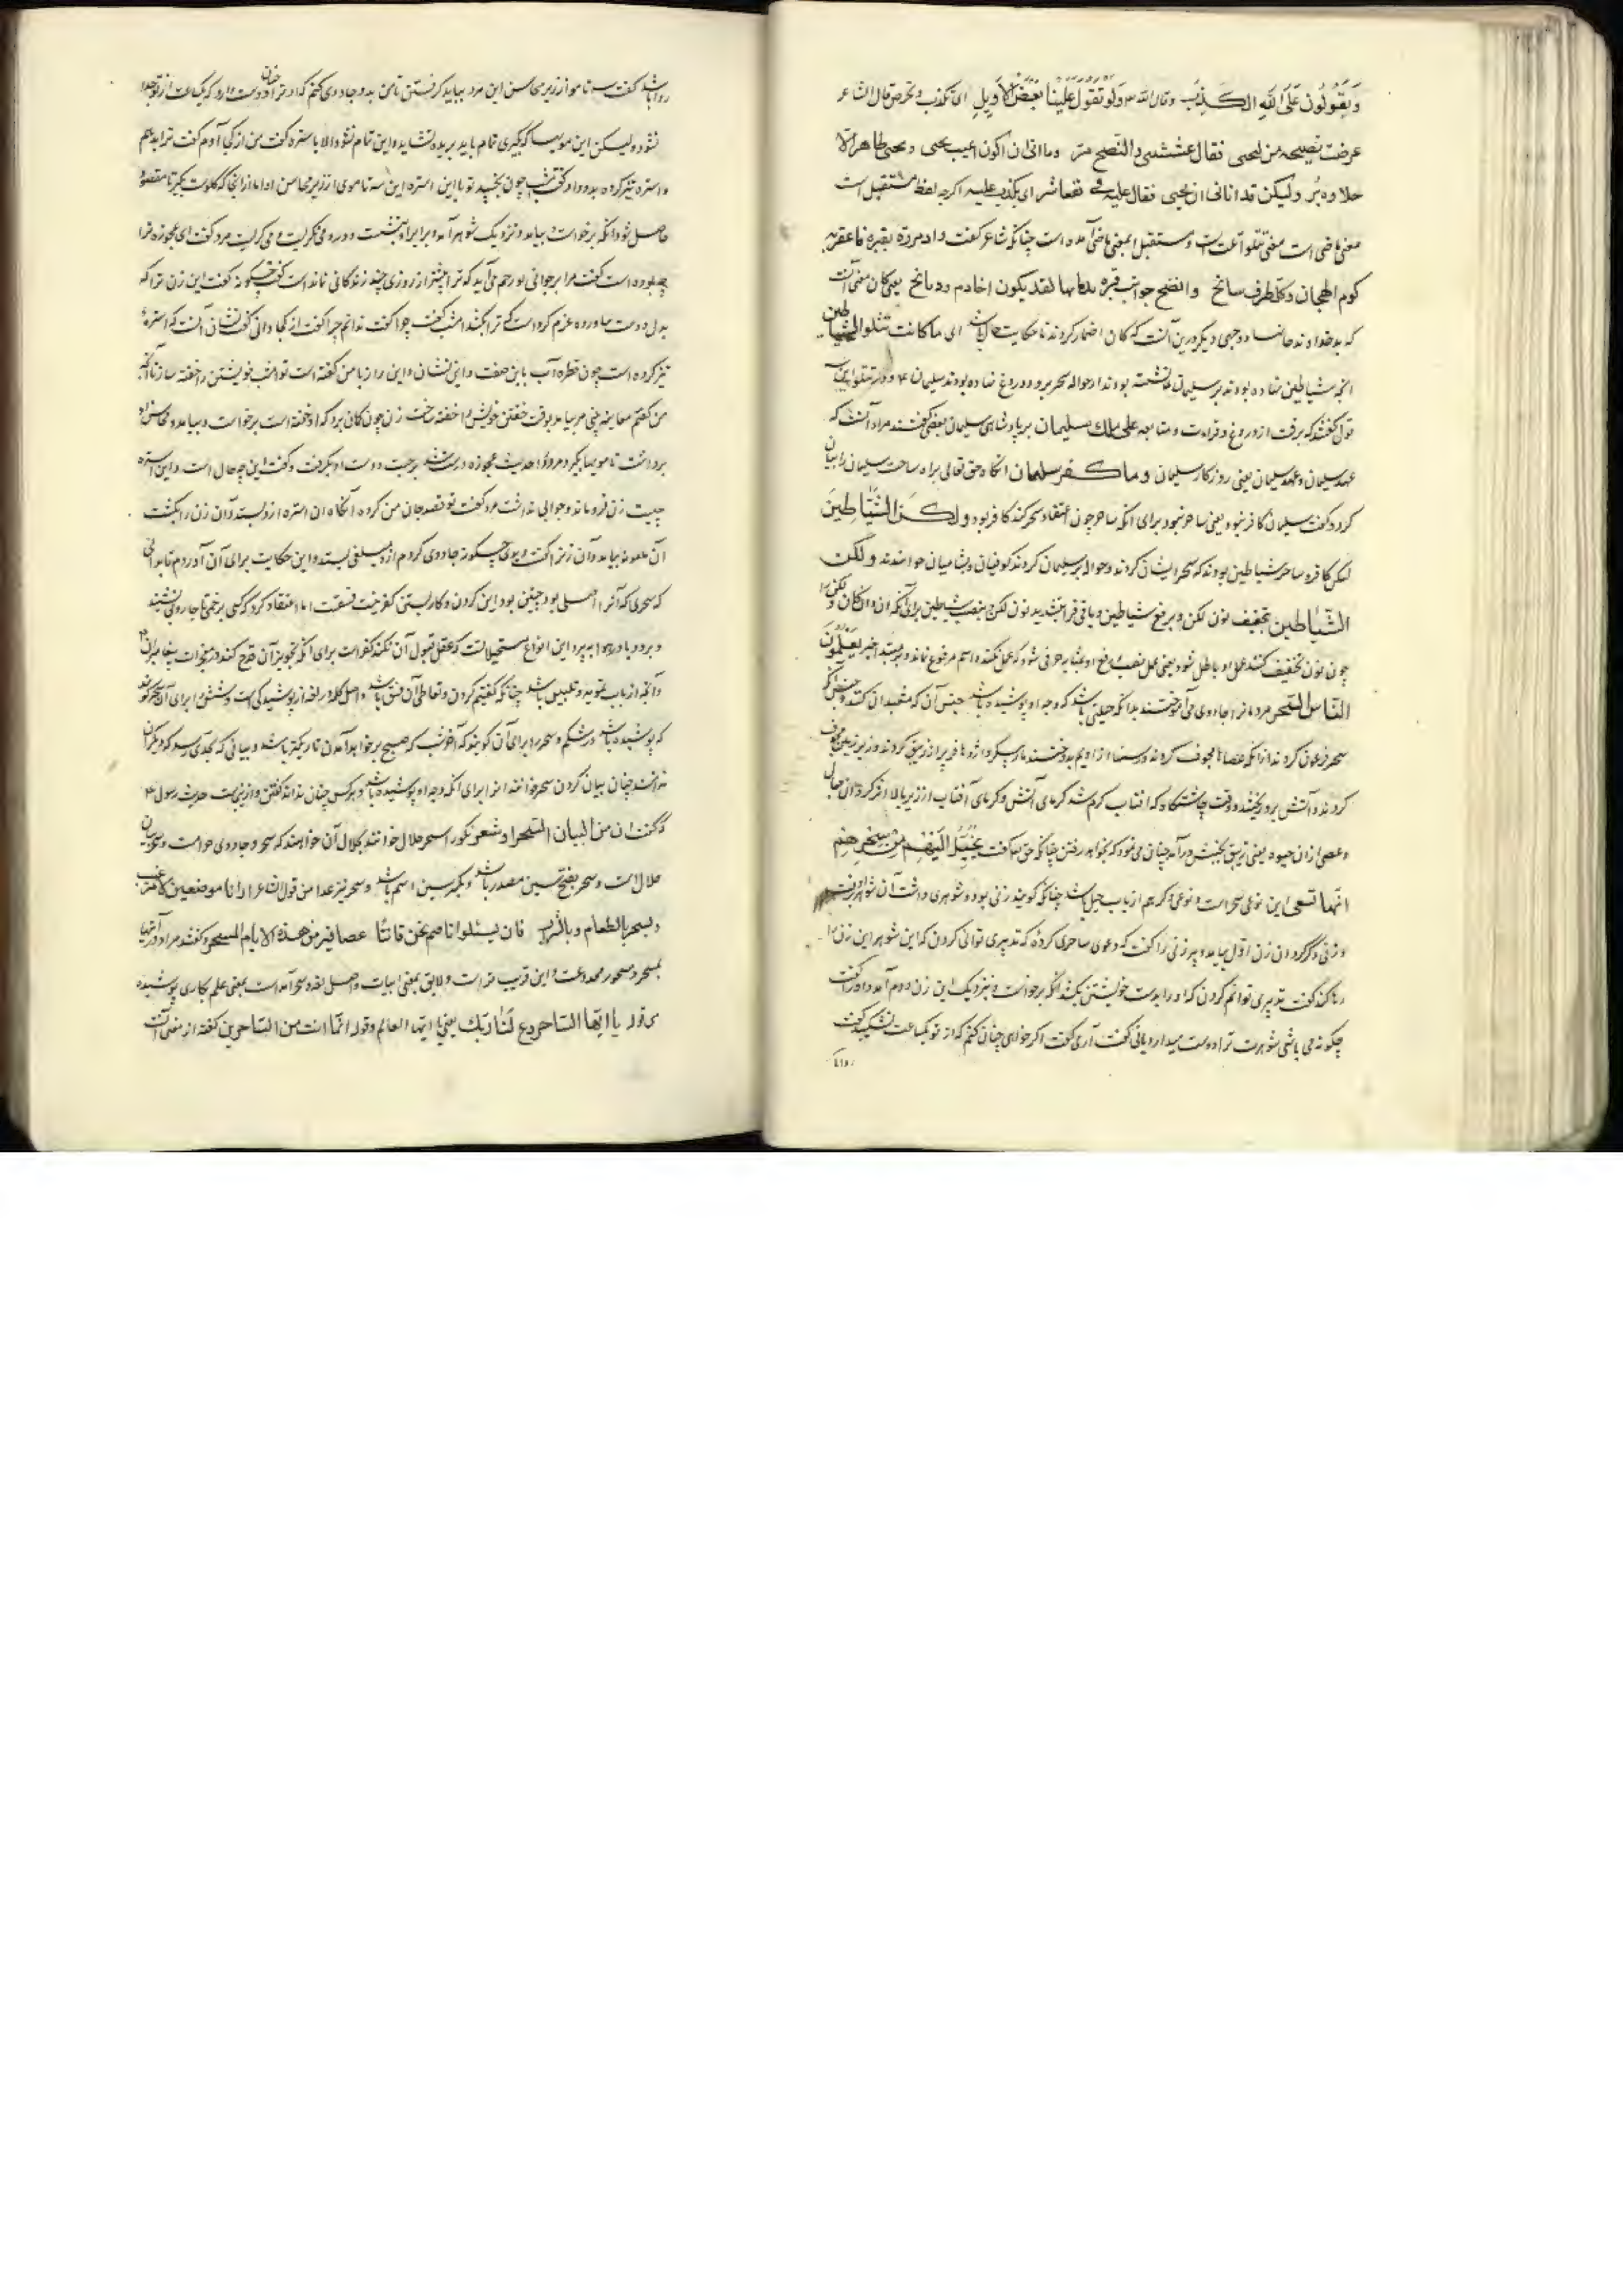 وَيَقُولُونَ عَلَى اللهِ الكَذِبَ وقال الله ولو تقول علينا بعض الاقاويل ای تکذب و تخرص قال الشاعر
عرضت نصیحة من لیحیی فقال غششتنی والنصح مر وما انی ان اکون اعیب یحیی و یحیی طاهر الا
خلاق بر ولیکن قد اتانی ان یحیی فقال علیه فی نفعا شر ای یکذب علیه اکرچه لفظ مستقبل است
معنی ماضی است معنی تتلوا تلت است و مستقبل بمعنی ماضی آمده است چنانکه شاعر کفت واذا مررت بقبره فاعقر به
کوم الهجان وکل طرف سابح وانضح جوانب قبره بدمائها فلقد یکون اخا دم وذبائح یعنی کان معنی آنست
که بودند و وجهی دیکر درین آنست که کان اضمار کردند تا حکایت حال باشد ای ما کانت تتلوا الشیاطین
انچه شیاطین نهاده بودند بر سلیمان
قول کفتند که برفت از دروغ و قراءت و متابعه علی ملک سلیمان بر پادشاهی سلیمان بعضی کفتند مراد آنست که
عهد سلیمان و عهد سلیمان یعنی روزکار سلیمان وما کفر سلیمان انکاه حق تعالی براءت ساحت سلیمان را بیان
کرد و کفت سلیمان کافر نبود یعنی ساحر نبود برای انکه ساحر چون اعتقاد سحر کند کافر بود ولکن الشیاطین
لیکن کافر و ساحر شیاطین بودند که سحر ایشان کردند و حواله بر سلیمان کردند کوفیان و شامیان خواندند ولکن
الشیاطین بتخفیف نون لکن و برفع شیاطین و باقی قرا بتشدید نون لکن و بنصب شیاطین برای آنکه ان و کان و لکن
چون نون تخفیف کنند عمل او باطل شود یعنی عمل نصب و رفع او بمثابه حرفی شود که عمل نکند و اسم مرفوع ماند بر مبتدا خبر یعلمون
الناس السحر مردمانرا جادوی می آموختند بدانکه حیلتی باشد که وجه او پوشیده باشد جنس آن که مشعبدان کنند
سحر فرعون کردند از انکه عصاها مجوف کردند و رسنها از ادیم بدوختند مار پیکر و اژدها و پر از زیبق کردند و زیر زمین مجوف
کردند و آتش برو ریختند و وقت چاشتکاه که افتاب کرم شد کرمای آتش و کرمای آفتاب از زیر و بالا اثر کرد
وعصی ازان حیوه یعنی زیبق بجنبش درآمد چنان می نمود که بخواهد رفتن چنانکه حق تعالی کفت یُخَیَّلُ اِلَیهِم مِن سِحرِهِم
انها تسعی این نوعی سحر است و نوعی دیکر هم از باب حیل باشد چنانکه کویند زنی بود و شوهری داشت آن شوهر برفت
و زنی دیکر کرد ان زن اول بیامد و پیر زنی را کفت که دعوی ساحری کردی که تدبیری توانی کردن که این شوهر این زن را
رها کند کفت تدبیری توانم کردن که او را بدست خویشتن بکشد انکه برخاست و بنزدیک این زن دوم آمد و او را کفت
چکونه می باشی شوهرت ترا دوست میدارد یا نی کفت آری کفت اکر خواهی چنان کنم که از تو یکساعت نشکیبد کفت
روا باشد کفت سه تا مو از زیر محاسن این مرد بباید کرفتن تا من بدو جادوی کنم که او ترا چنان دوست دارد که یک ساعت از تو جدا
نشود ولیکن این مو بباید که بکیری تمام باید بریده نشاید و این تمام نشود الا باستره کفت من از کجا آرم کفت ترا بدهم
و استره تیز کرده بدو داد و کفت شب چون بخسپد تو با این استره این سه تا موی از زیر محاسن او
حاصل شود انکه برخواست و بیامد و نزدیک شوهر آمد و برابر او بنشست و درو می نکریست و می کریست مرد کفت ای عجوزه ترا
چه بوده است کفت مرا بر جوانی تو رحم می آید که ترا بیشتر از روزی چند زندکانی نمانده است کفت چکونه کفت این زن ترا که
بدل دوست بیاورده عزم کرده است که ترا بکشد امشب کفت چرا کفت ندانم چرا کفت از کجا دانی کفت نشان آنست که استره
تیز کرده است چون قطره آب باین صفت و این نشان و این راز با من کفته است تو امشب خویشتن را خفته ساز تا آنچه
من کفتم معاینه بینی مرد بیامد بوقت خفتن خویش را خفته ساخت زن چون کمان برد که او خفته است برخواست و بیامد و محاسن او
برداشت تا مو بسها بکیرد مرد را حدیث عجوزه درست شد برجست و دست او بکرفت و کفت این چه حال است و این استره
چیست زن فرو ماند و جوابی نداشت مرد کفت تو قصد جان من کرده انکاه ان استره ازو بستد و آن زن را بکشت
آن ملعونه بیامد و آن زنرا کفت دیدی چکونه جادوی کردم ازو مبلغی بستد و این حکایت برای آن آوردم تا بدانی
که سحری که آنرا اصلی بود چنین بود این کردن و کار بستن کفر نیست فسقست اما اعتقاد کردن که کسی بر خم یا جاروبی نشیند
و برود یا در هوا بپرد این انواع مستحیلات که عقل قبول آن نکند کفر است برای انکه تجویز آن قدح کند در معجزات پیغامبران
و آنچه از باب تمویه و تلبیس باشد چنانکه کفتیم کردن و تعاطی آن فسق باشد و اصل کلمه در لغه از پوشیدکی است و شش را برای آن سحر کویند
که پوشیده باشد در شکم و سحر را برای آن کویند که آخر شب که صبح برخواهد آمدن تاریکتر باشد و بیانی که بحدی رسد که دیکران
ندانند چنان بیان کردن سحر خوانند انرا برای انکه وجه او پوشیده باشد و هر کس چنان نداند کفتن و ازینست حدیث رسول ع
که کفت ان من البیان لسحرا و شعر نکو را سحر حلال خوانند بحلال آن خواهند که سحر و جادوی حرامست و سحر بیان
حلال است و سحر بفتح سین مصدر باشد و بکسر سین اسم باشد و سحر نیز غذا من قول الشاعر ارانا موضعین لامر غیب
ونسحر بالطعام وبالشراب فان یسئلوا انا صم نحن فاننا عصافیر من هذه الانام المسحر و کفتند مراد درآنها
بمسحر و مسحور مخدوعست و این قریب تر است و لایق بمعنی ابیات و اصل لغه و سحر آمده است بمعنی علم بکاری پوشیده
فی قوله یا ایها الساحر ادع لنا ربک یعنی یا ایها العالم و قوله انما انت من الساحرین کفته از معنی آنست